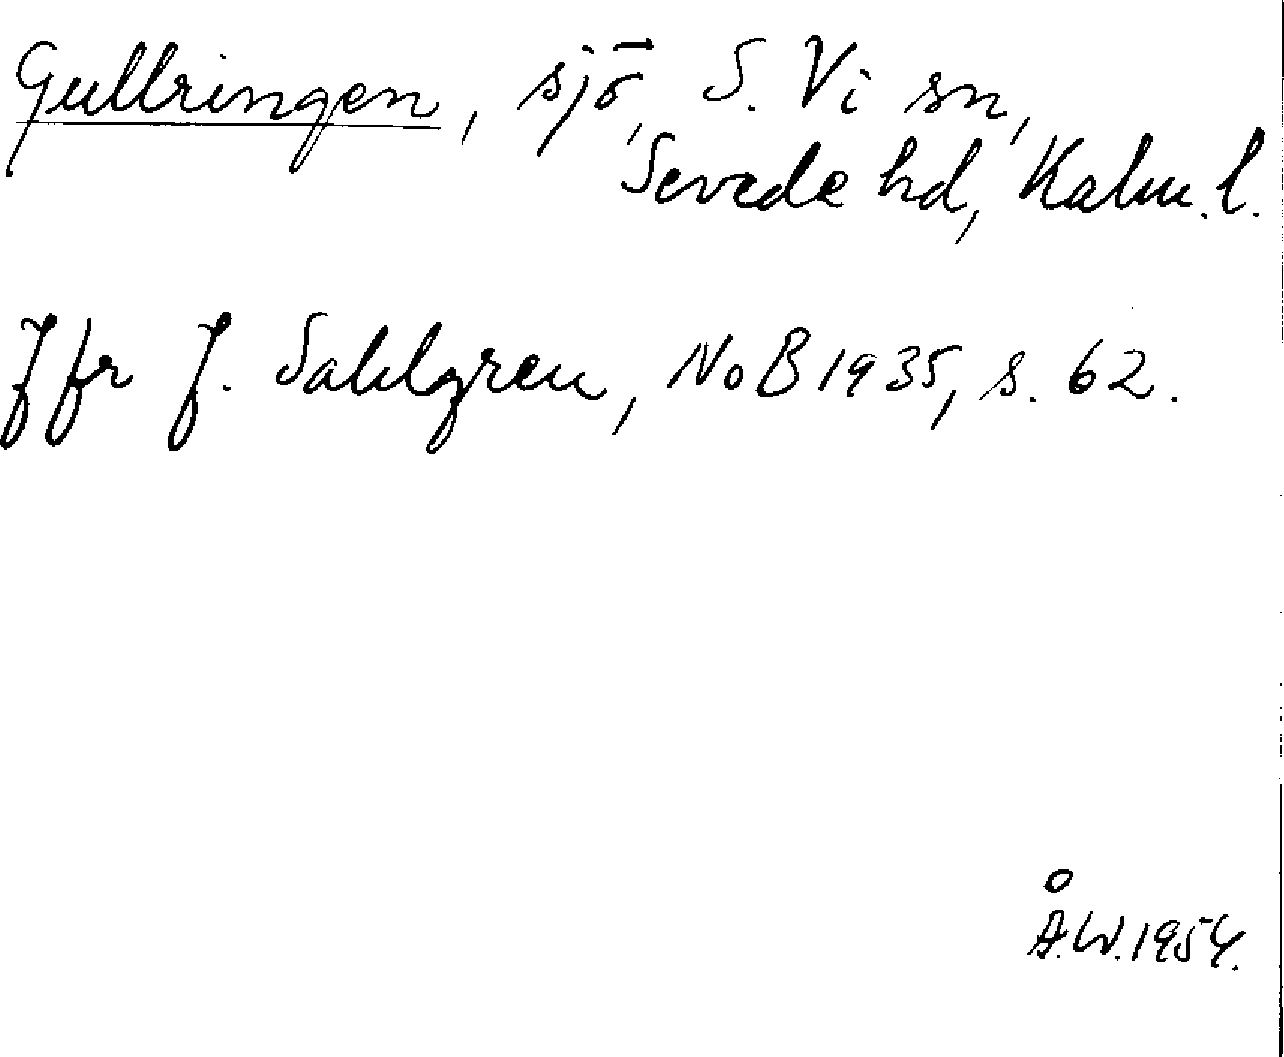 Gullringen, sjö, S. Vi sn,
Sevede hd, Kalm. l.
Jfr J. Sahlgren, NoB 1935, s. 62.
Å.W. 1954.